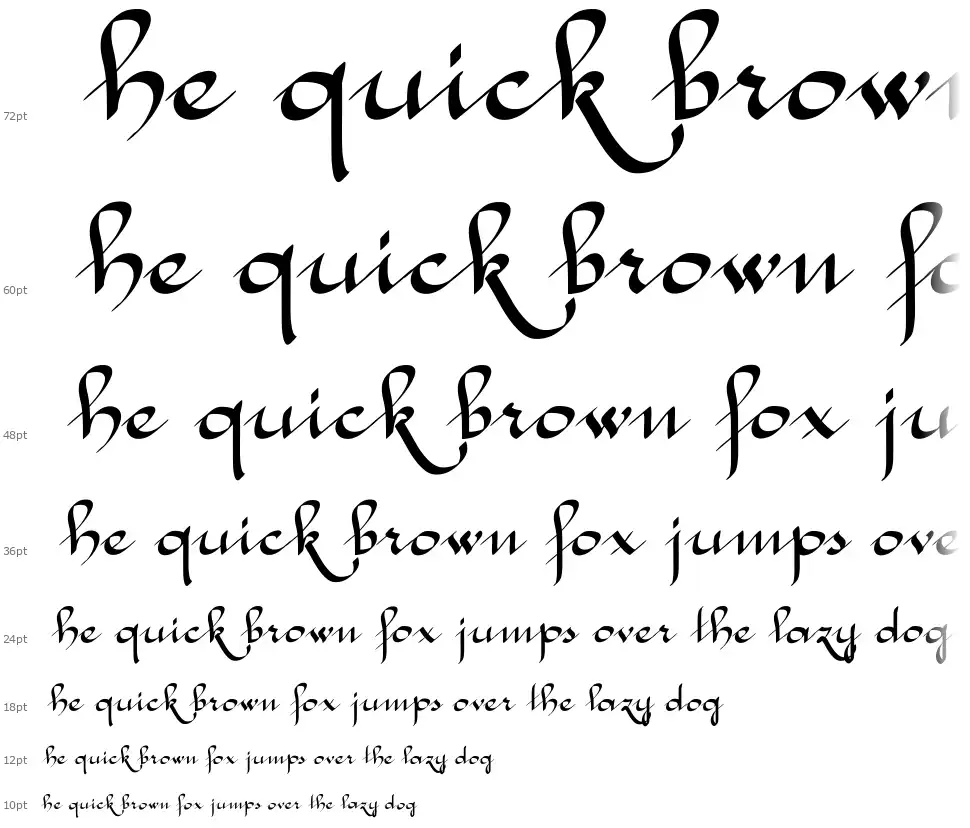 72pt he quick brown
60pt he quick brown fo
48pt he quick brown fox ju
36pt he quick brown fox jumps ove
24pt he quick brown fox jumps over the lazy dog
18pt he quick brown fox jumps over the lazy dog
12pt he quick brown fox jumps over the lazy dog
10pt he quick brown fox jumps over the lazy dog